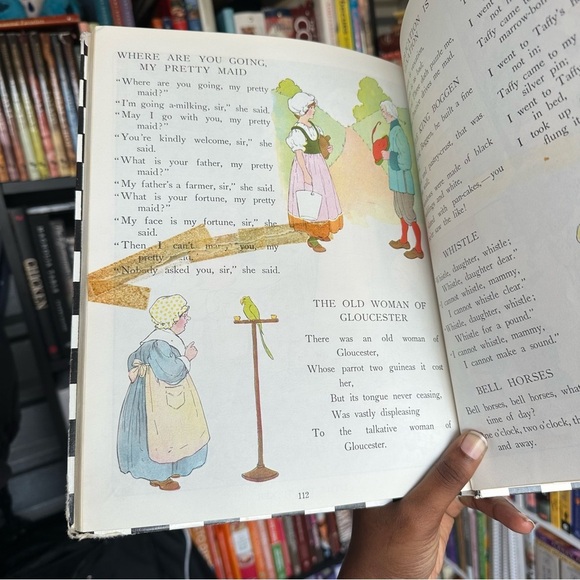 WHERE ARE YOU GOING,
MY PRETTY MAID
"Where are you going, my pretty
maid?"
"I'm going a-milking, sir," she said.
"May I go with you, my pretty
maid?"
"You're kindly welcome, sir," she
said.
"What is your father, my pretty
maid?"
"My father's a farmer, sir," she said.
"What is your fortune, my pretty
maid?"
"My face is my fortune, sir," she
said.
"Then I can't marry you, my
pretty maid."
"Nobody asked you, sir," she said.
THE OLD WOMAN OF
GLOUCESTER
There was an old woman of
Gloucester,
Whose parrot two guineas it cost
her,
But its tongue never ceasing,
Was vastly displeasing
To the talkative woman of
Gloucester.
112
I went to
Taffy came to
marrow-bone
I went to
not in;
Taffy came to my
silver pin;
I went to Taffy
in bed,
I took up
flung it
BOGGEN
he built a fine
that was
were made of black
and white,
with pan-cakes,—you
saw the like!
WHISTLE
Whistle, daughter, whistle;
Whistle, daughter dear.
I cannot whistle, mammy,
I cannot whistle clear.
Whistle, daughter, whistle;
Whistle for a pound."
I cannot whistle, mammy,
I cannot make a sound."
BELL HORSES
Bell horses, bell horses, what
time of day?
o'clock, two o'clock, th
and away.
CHICKEN